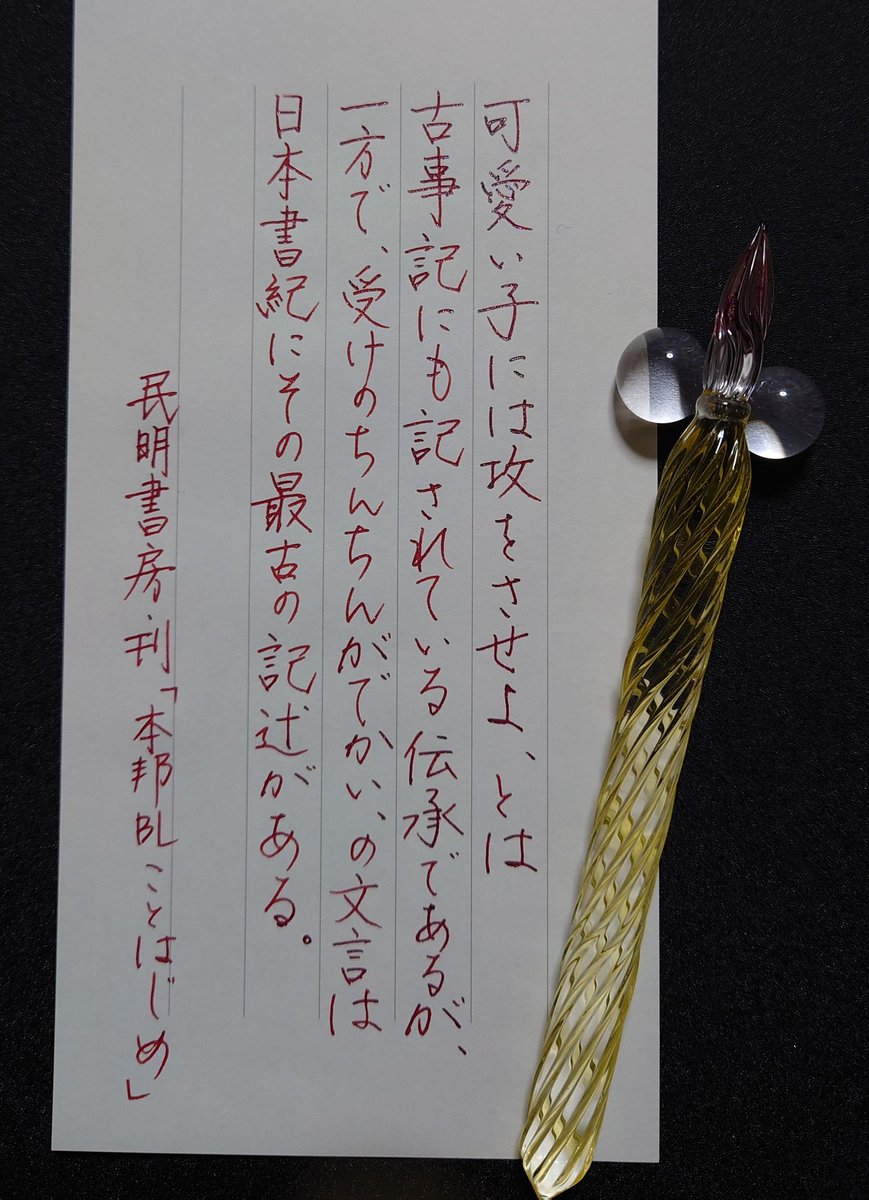 可愛い子には攻をさせよ、とは
古事記にも記されている伝承であるが、
一方で、受けのちんちんがでかい、の文言は
日本書紀にその最古の記述がある。
民明書房・刊「本邦BLことはじめ」